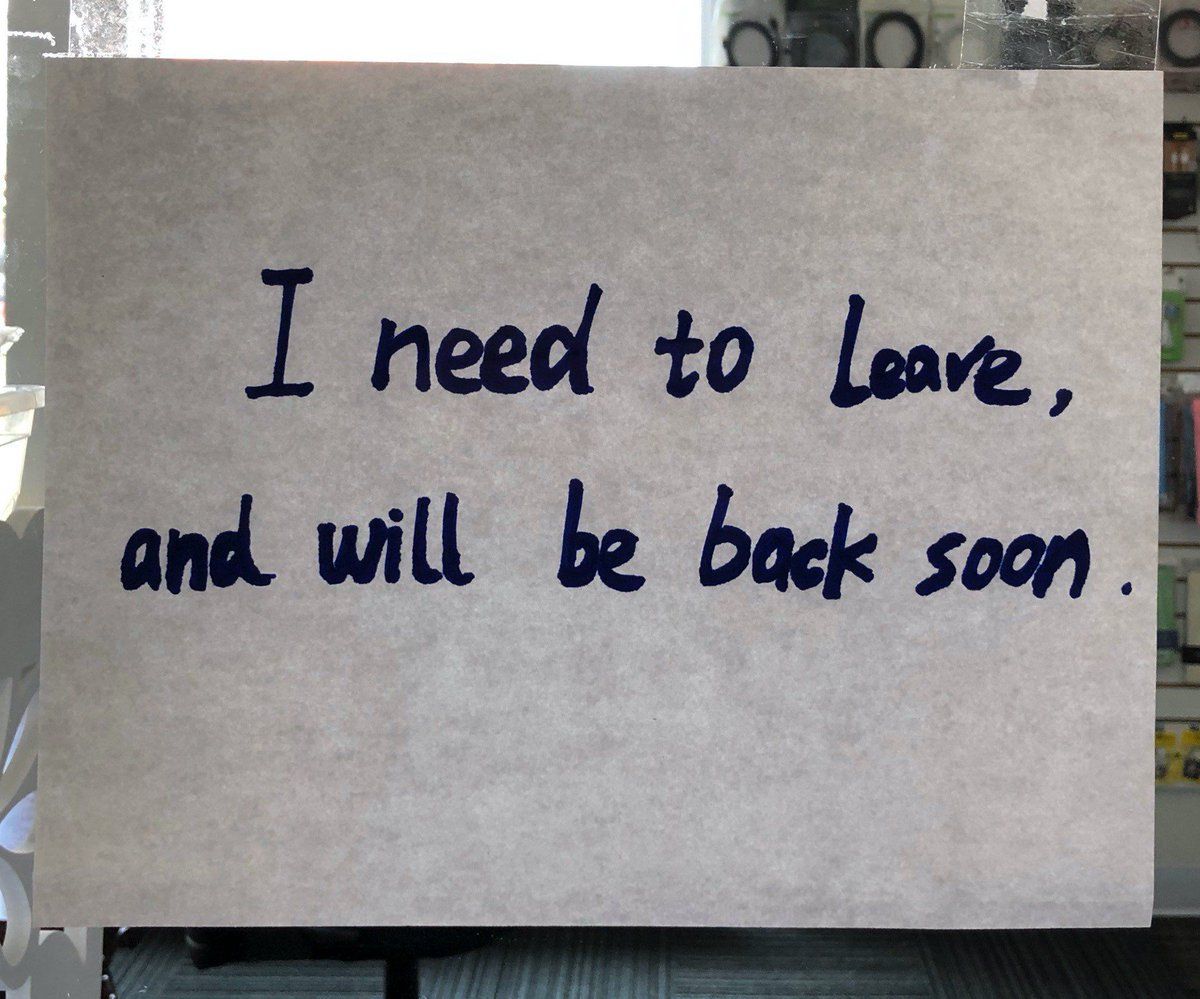 I need to leave,
and will be back soon.